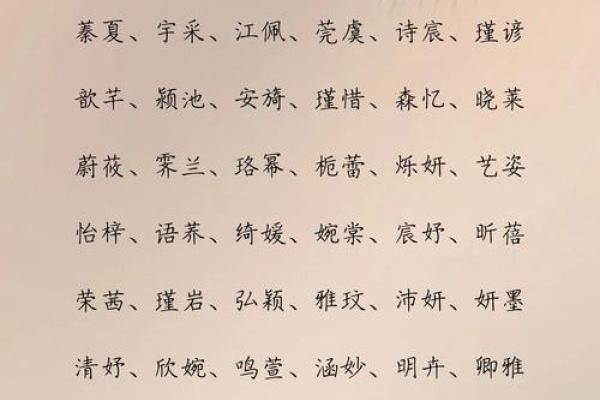 蓁夏、宇采、江佩、莞虞、诗宸、瑾谚
歆芊、颍池、安旖、瑾惜、森忆、晓菜
蔚莜、霁兰、珞幂、栀蕾、烁妍、艺姿
怡梓、语荞、绮媛、婉棠、宸妤、昕蓓
荣茜、瑾岩、弘颖、雅玟、沛妍、妍墨
清妤、欣婉、鸣萱、涵妙、明卉、卿雅